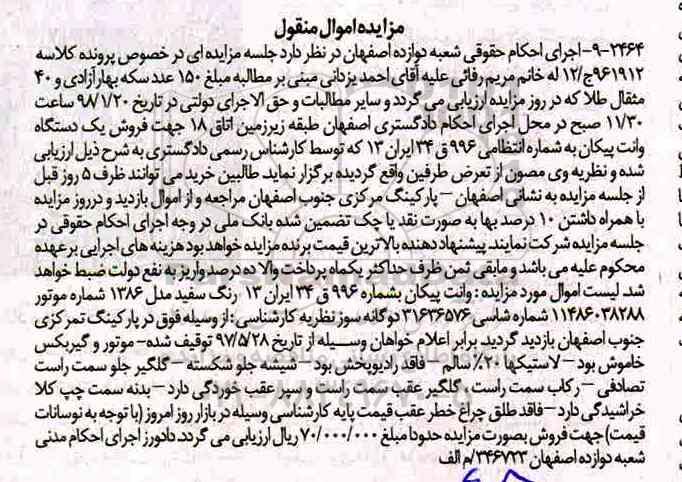 مزایده اموال منقول
۲۴۶۴-۹- اجرای احکام حقوقی شعبه دوازده اصفهان در نظر دارد جلسه مزایده ای در خصوص پرونده کلاسه
۹۶۱۹۱۲ج/۱۲ له خانم مریم رفائی علیه آقای احمد یزدانی مبنی بر مطالبه مبلغ ۱۵۰ عدد سکه بهار آزادی و ۴۰
مثقال طلا که در روز مزایده ارزیابی می گردد و سایر مطالبات و حق الاجرای دولتی در تاریخ ۹۸/۱/۲۰ ساعت
۱۱/۳۰ صبح در محل اجرای احکام دادگستری اصفهان طبقه زیرزمین اتاق ۱۸ جهت فروش یک دستگاه
وانت پیکان به شماره انتظامی ۹۹۶ ق ۳۴ ایران ۱۳ که توسط کارشناس رسمی دادگستری به شرح ذیل ارزیابی
شده و نظریه وی مصون از تعرض طرفین واقع گردیده برگزار نماید طالبین خرید می توانند ظرف ۵ روز قبل
از جلسه مزایده به نشانی اصفهان – پارکینگ مرکزی جنوب اصفهان مراجعه و از اموال بازدید و درروز مزایده
با همراه داشتن ۱۰ درصد بها به صورت نقد یا چک تضمین شده بانک ملی در وجه اجرای احکام حقوقی در
جلسه مزایده شرکت نمایند. پیشنهاد دهنده بالاترین قیمت برنده مزایده خواهد بود هزینه های اجرایی بر عهده
محکوم علیه می باشد و مابقی ثمن ظرف حداکثر یکماه پرداخت والا ده درصد واریز به نفع دولت ضبط خواهد
شد. لیست اموال مورد مزایده : وانت پیکان بشماره ۹۹۶ ق ۳۴ ایران ۱۳ رنگ سفید مدل ۱۳۸۶ شماره موتور
۱۱۴۸۶۰۳۸۲۸۸ شماره شاسی ۳۱۶۳۶۵۷۶ دوگانه سوز نظریه کارشناسی : از وسیله فوق در پارکینگ تمرکزی
جنوب اصفهان بازدید گردید برابر اعلام خواهان وسیله از تاریخ ۹۷/۵/۲۸ توقیف شده- موتور و گیربکس
خاموش بود – لاستیکها ۲۰٪ سالم – فاقد رادیو پخش بود – شیشه جلو شکسته – گلگیر جلو سمت راست
تصادفی – رکاب سمت راست ، گلگیر عقب سمت راست و سپر عقب خوردگی دارد – بدنه سمت چپ کلا
خراشیدگی دارد – فاقد طلق چراغ خطر عقب قیمت پایه کارشناسی وسیله در بازار روز امروز (با توجه به نوسانات
قیمت) جهت فروش بصورت مزایده حدودا مبلغ ۷۰/۰۰۰/۰۰۰ ریال ارزیابی می گردد. دادورز اجرای احکام مدنی
شعبه دوازده اصفهان ۳۴۶۷۲۳/م الف